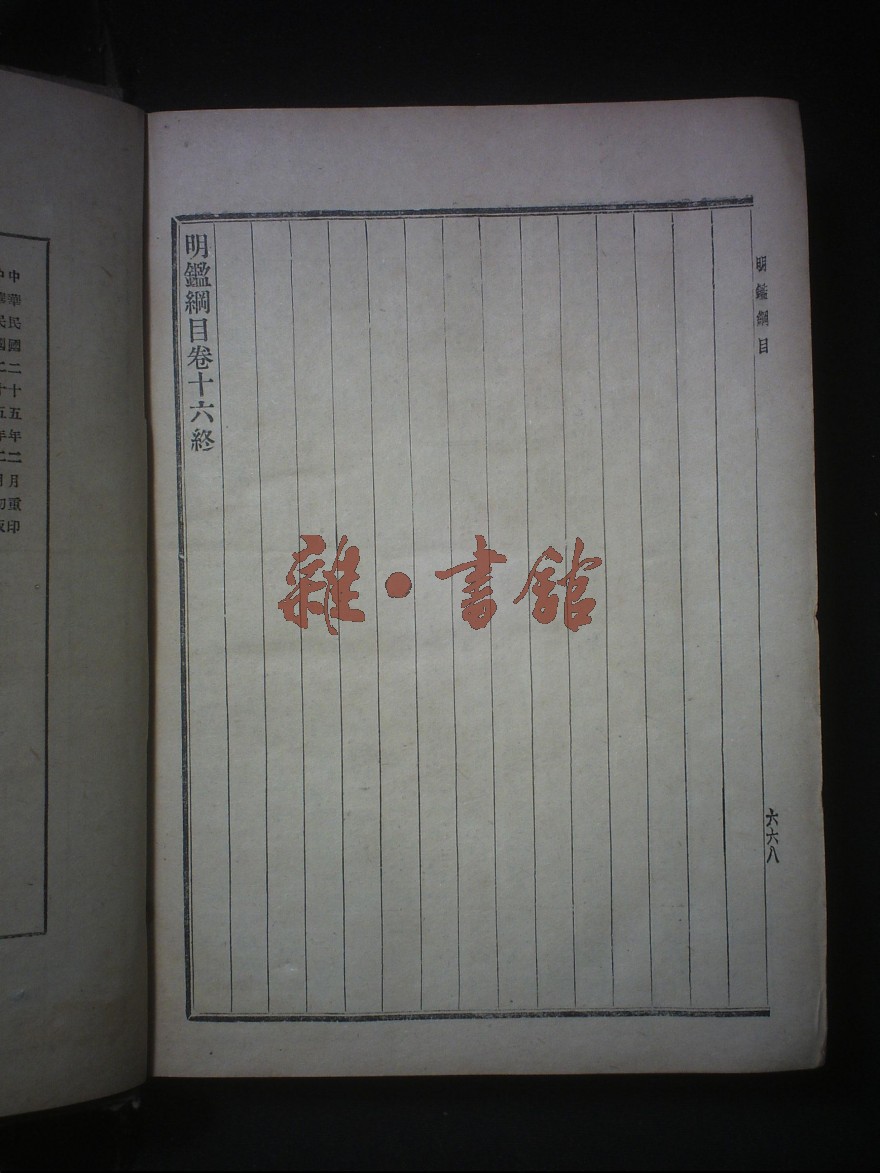 明鑑綱目
六六八
明鑑綱目卷十六終
雜·書館
中華民國二十五年二月重印
中華民國二十五年二月初版